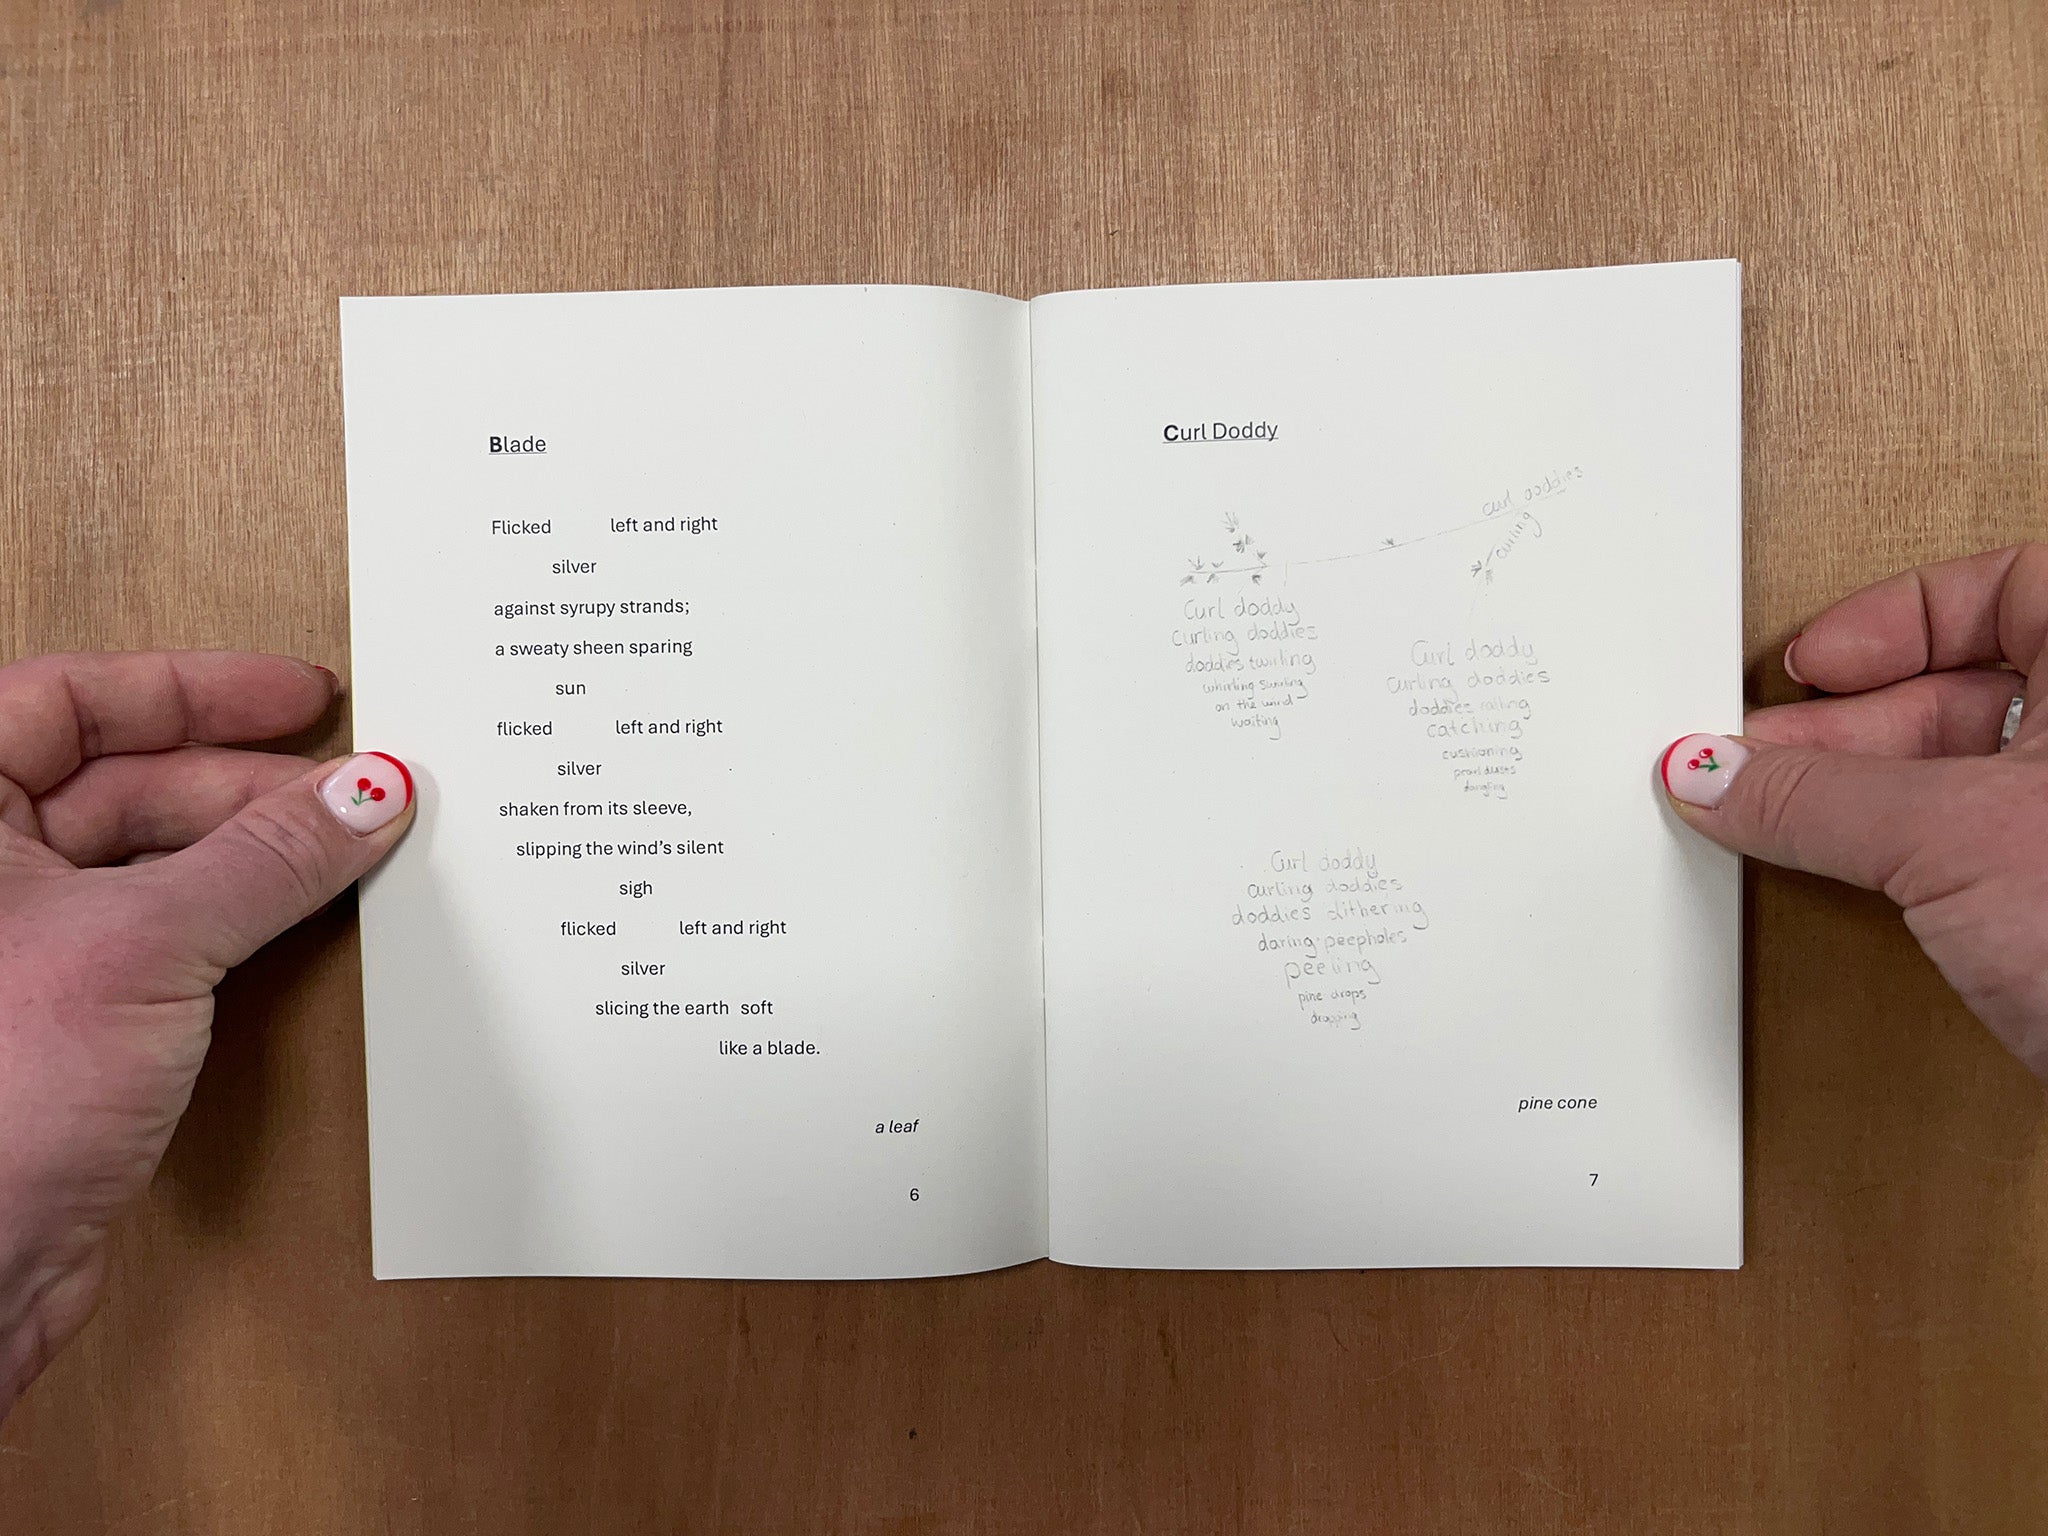 Blade
Flicked left and right
silver
against syrupy strands;
a sweaty sheen sparing
sun
flicked left and right
silver
shaken from its sleeve,
slipping the wind's silent
sigh
flicked left and right
silver
slicing the earth soft
like a blade.
a leaf
6
Curl Doddy
curl doddies
curling
Curl doddy
curling doddies
doddies twirling
whirling swirling
on the wind
waiting
Curl doddy
curling doddies
doddies falling
catching
cushioning
dangling
Curl doddy
curling doddies
doddies dithering
daring peepholes
peeling
pine drops
dropping
pine cone
7